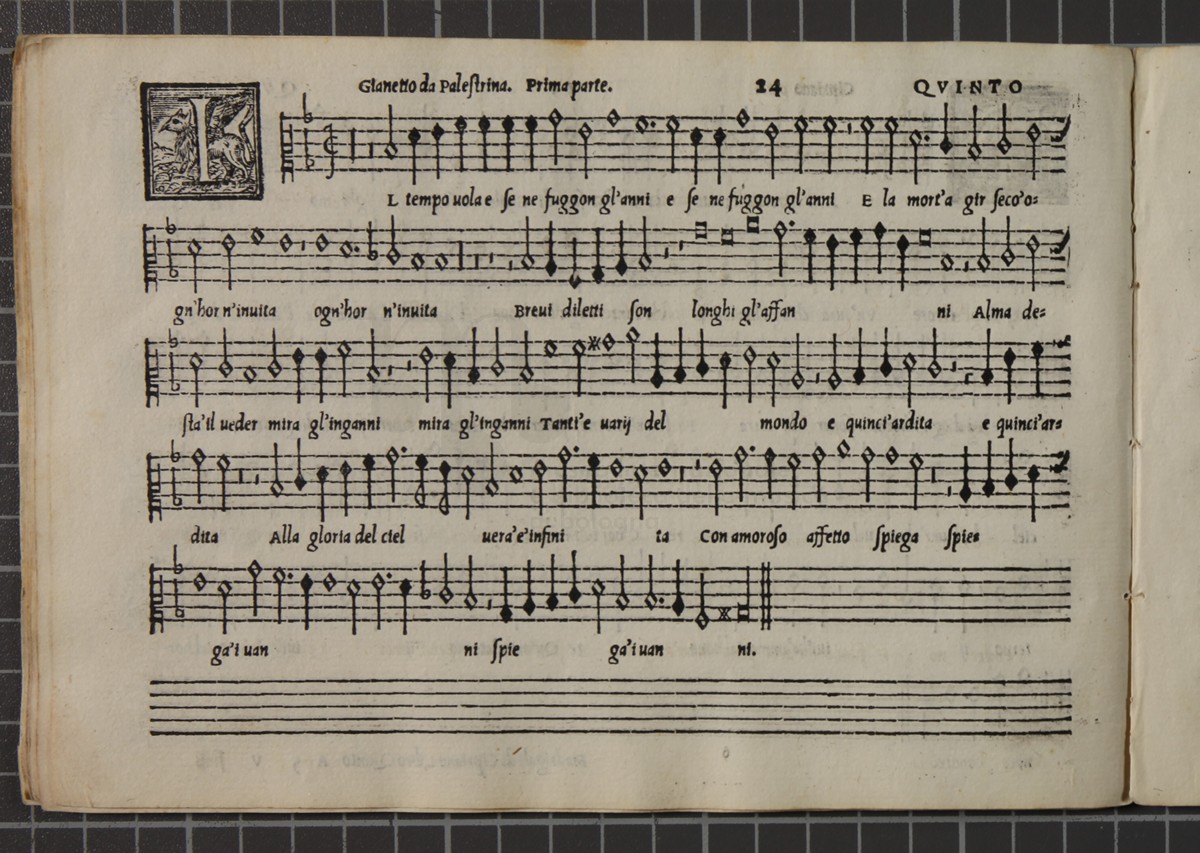 Gianetto da Palestrina. Prima parte. 24 QVINTO
IL tempo uola e se ne fuggon gl'anni e se ne fuggon gl'anni E la mort'a gir seco'o=
gn'hor n'inuita ogn'hor n'inuita Breui diletti son longhi gl'affan ni Alma de=
sta'il ueder mira gl'inganni mira gl'inganni Tanti'e uarij del mondo e quinci'ardita e quinci'ar=
dita Alla gloria del ciel uera'e'infini ta Con amoroso affetto spiega spie=
ga'i uan ni spie ga'i uan ni.